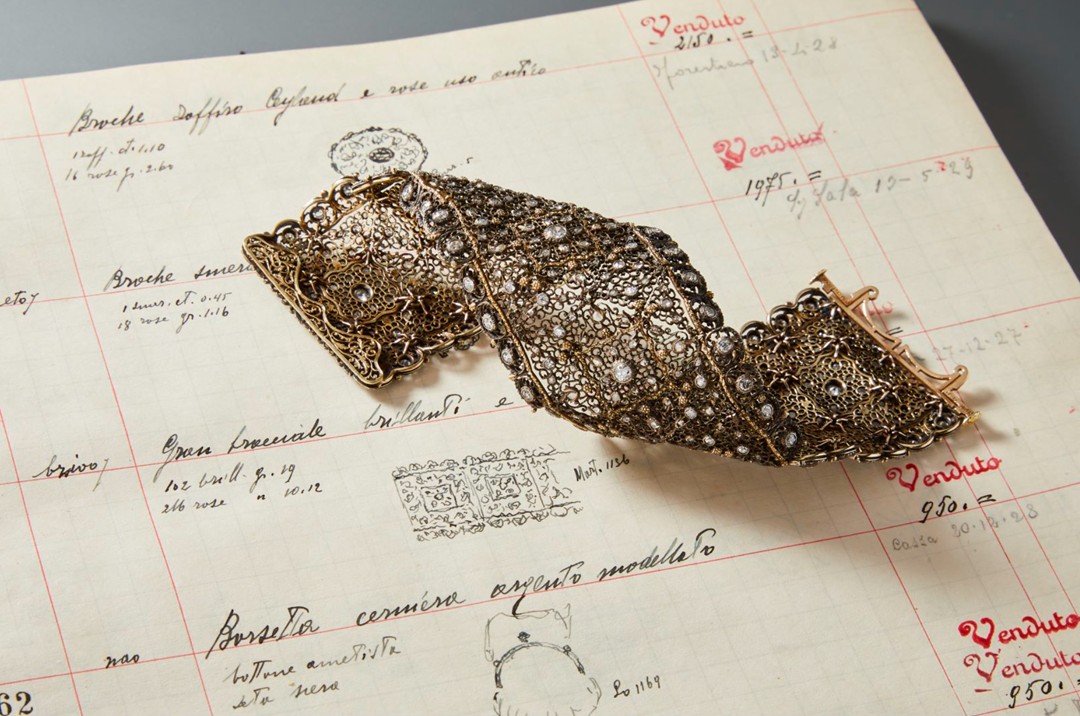 Venduto
2150. =
13-2-28
Broche Zaffiro Ceyland e rose uso antico
1 zaff. ct. 1.10
16 rose gr. 2.60
Venduto
1975. =
13-5-29
Broche smera
1 smer. ct. 0.45
18 rose gr. 1.16
27-12-27
Gran bracciale brillanti e
102 brill. gr. 19
216 rose " 10.12
Mont. 1136
Venduto
950. =
Bassa 20.12.28
Borsetta cerniera argento modellato
nao
bottone ametista
seta nera
Lo 1169
Venduto
Venduto
950.
62